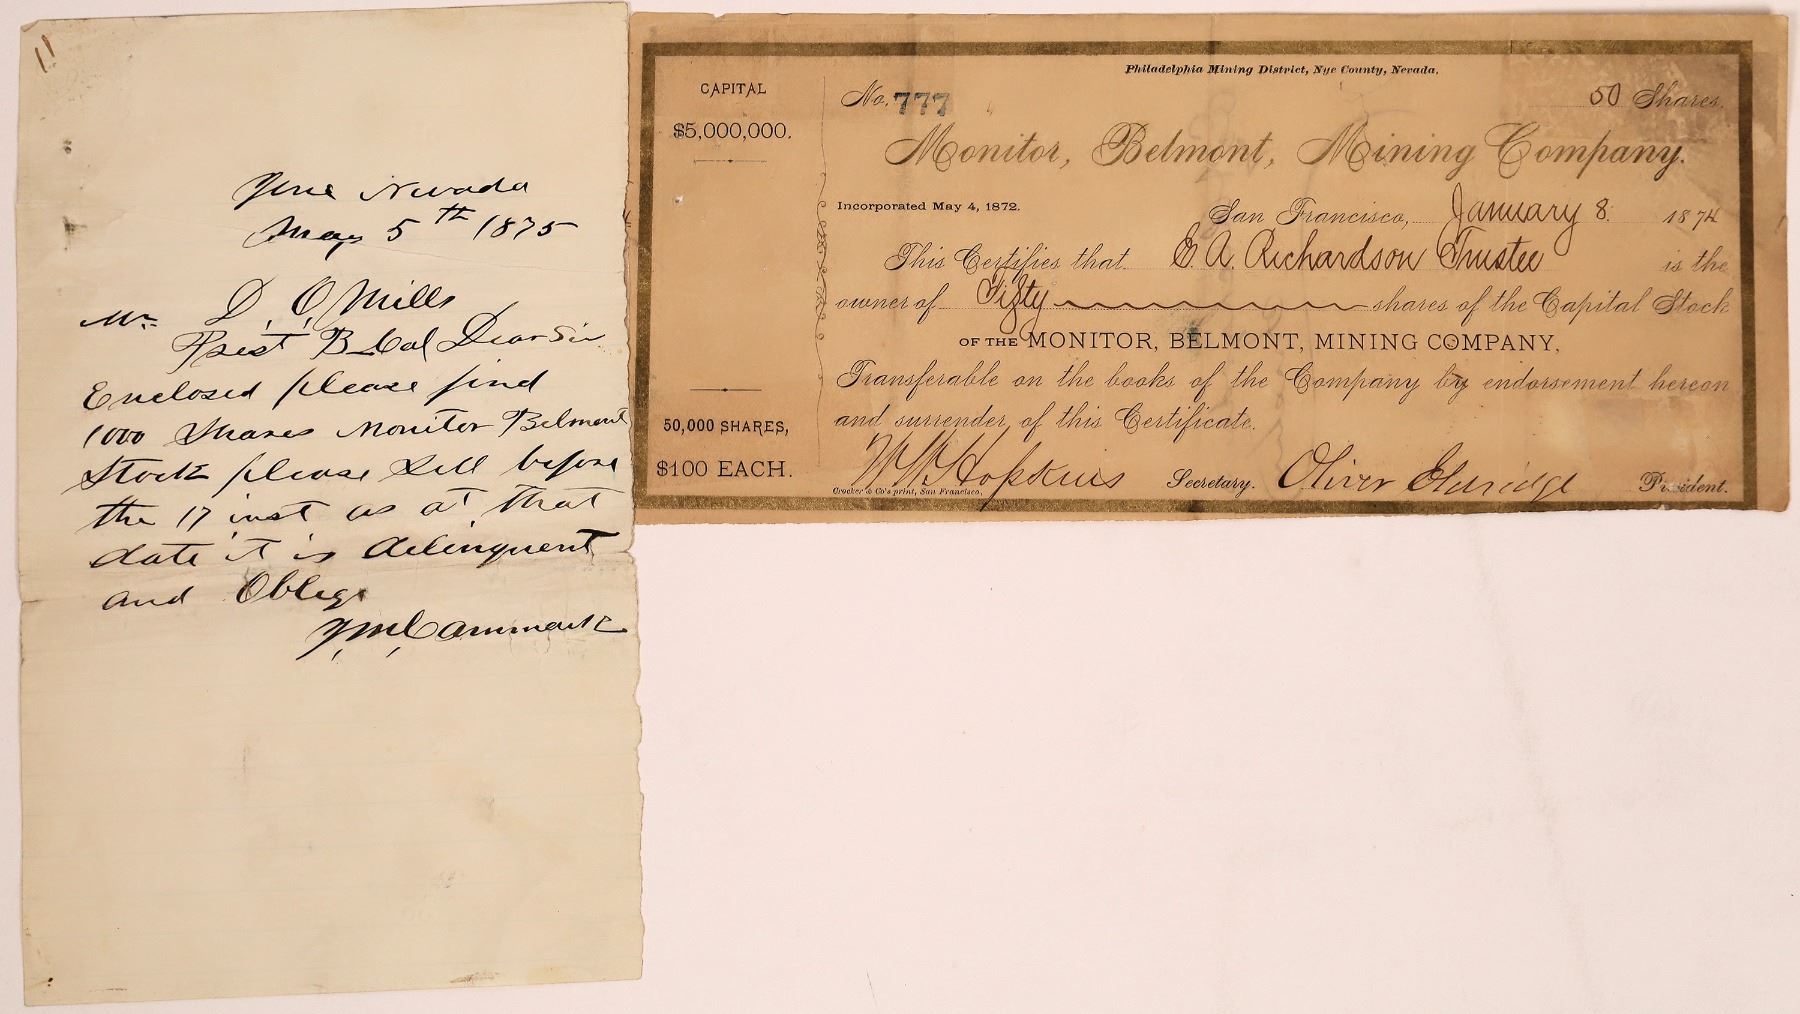 Nevada
May 5th 1875
Mr. D. O. Mills
Prest B. Cal Dear Sir
Enclosed please find
1000 Shares Monitor Belmont
Stock please Sell before
the 17 inst as at that
date it is delinquent
and Oblege
Cammack
Philadelphia Mining District, Nye County, Nevada.
CAPITAL
$5,000,000.
50,000 SHARES,
$100 EACH.
No. 777
50 Shares.
Monitor, Belmont, Mining Company.
Incorporated May 4, 1872.
San Francisco, January 8. 1874
This Certifies that E. A. Richardson Trustee is the
owner of Fifty shares of the Capital Stock
OF THE MONITOR, BELMONT, MINING COMPANY,
Transferable on the books of the Company by endorsement hereon
and surrender of this Certificate.
Hopkins Secretary. Oliver Eldridge President.
Crocker & Co's print, San Francisco.